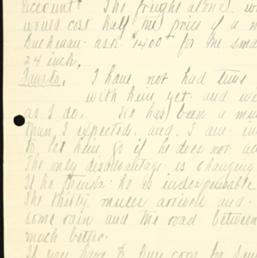 account? The freight alone w
would cost half the price of a n
Buckman ask $1400 for the sma
24 inch.
I have not had time
with him, yet and we
as I do. He has been a mu
than I expected, and I am in
to, let him go if he does not ac
The only disadvantage is changing
He thinks he is indispensable
The thirty mules arrived and
some rain and the road between
much better.
If you have to buy corn for